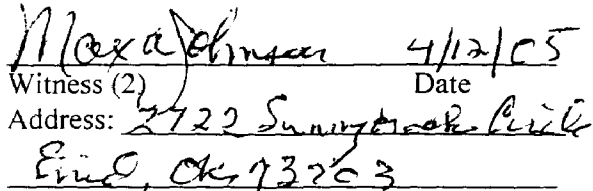 Max A Johnson 4/12/05
Witness (2) Date
Address: 2722 Sunnybrook Circle
Enid, OK 73703